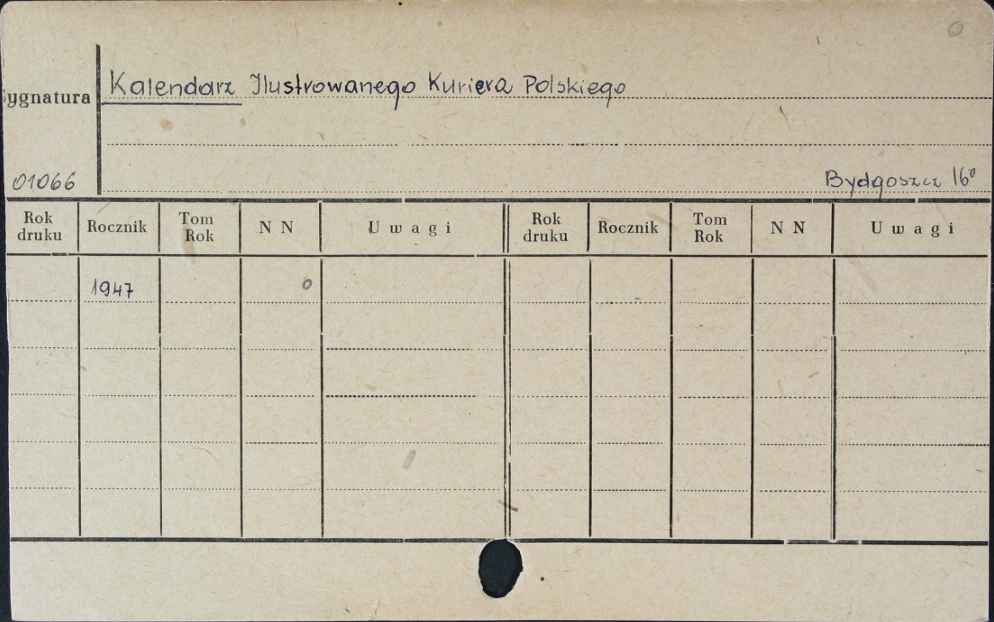 0
Kalendarz Ilustrowanego Kuriera Polskiego
Sygnatura
01066
Bydgoszcz 16°
Rok druku Rocznik Tom Rok N N Uwagi Rok druku Rocznik Tom Rok N N Uwagi
1947 0